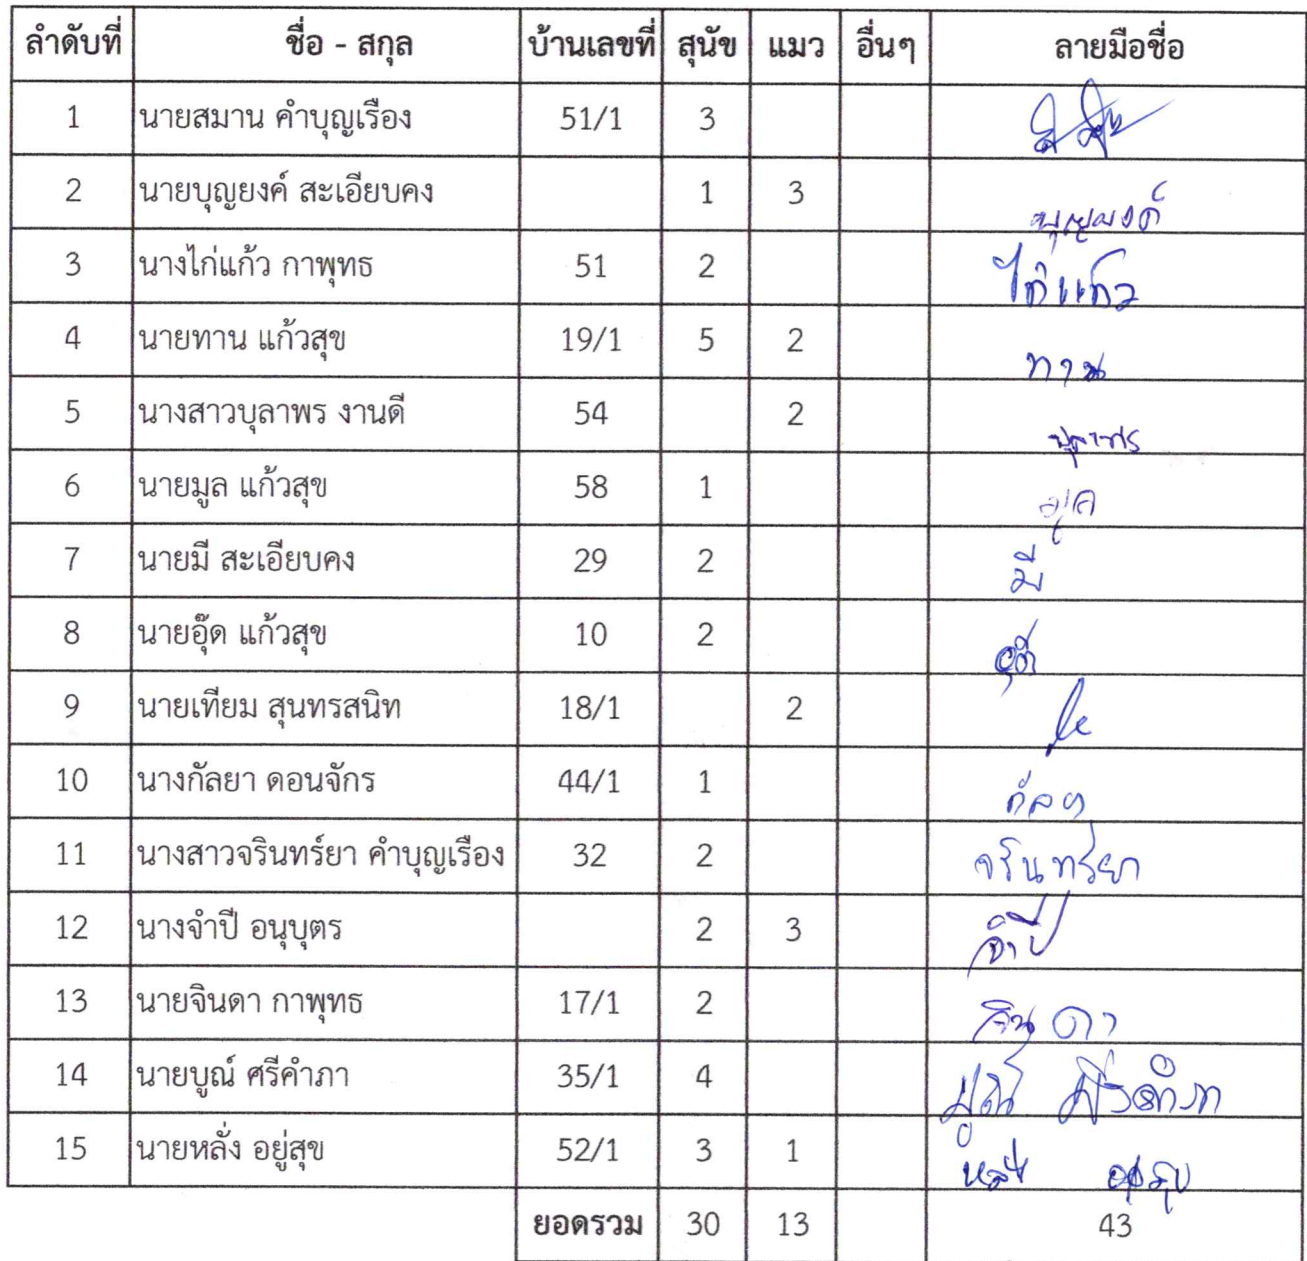 ลำดับที่ ชื่อ - สกุล บ้านเลขที่ สุนัข แมว อื่นๆ ลายมือชื่อ
1 นายสมาน คำบุญเรือง 51/1 3
2 นายบุญยงค์ สะเอียบคง 1 3 บุญยงค์
3 นางไก่แก้ว กาพุทธ 51 2 ไก่แก้ว
4 นายทาน แก้วสุข 19/1 5 2 ทาน
5 นางสาวบุลาพร งานดี 54 2 บุลาพร
6 นายมูล แก้วสุข 58 1 มูล
7 นายมี สะเอียบคง 29 2 มี
8 นายอุ๊ด แก้วสุข 10 2
9 นายเทียม สุนทรสนิท 18/1 2
10 นางกัลยา ดอนจักร 44/1 1 กัลยา
11 นางสาวจรินทร์ยา คำบุญเรือง 32 2 จรินทร์ยา
12 นางจำปี อนุบุตร 2 3 จำปี
13 นายจินดา กาพุทธ 17/1 2 จินดา
14 นายบูณ์ ศรีคำภา 35/1 4 บูณ์ ศรีคำภา
15 นายหลั่ง อยู่สุข 52/1 3 1 หลั่ง อยู่สุข
ยอดรวม 30 13 43